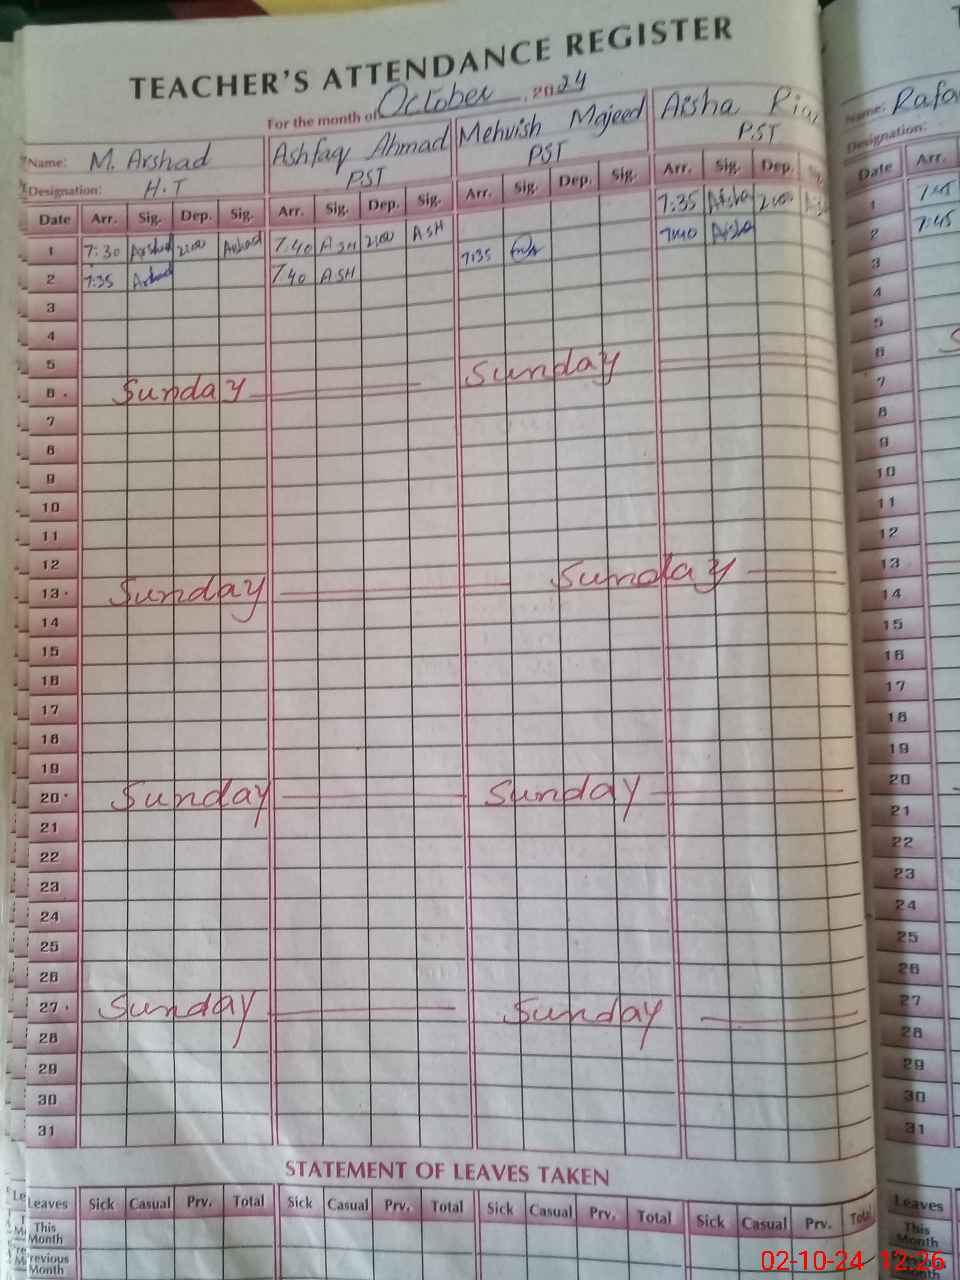 TEACHER'S ATTENDANCE REGISTER
For the month of October, 2024
Name: M. Arshad Ashfaq Ahmad Mehvish Majeed Aisha Riaz Name: Rafa
Designation: H.T PST PST PST Designation:
Date Arr. Sig. Dep. Sig. Arr. Sig. Dep. Sig. Arr. Sig. Dep. Sig. Arr. Sig. Dep. Date Arr.
1 7:30 Arshad 2:00 Arshad 7:40 ASH 2:00 ASH 7:35 Aisha 2:00 1 7:45
2 7:35 Arshad 7:40 ASH 7:35 7:40 Aisha 2 7:45
3 3
4 4
5 5
6 Sunday Sunday 6
7 7
8 8
9 9
10 10
11 11
12 12
13 Sunday Sunday 13
14 14
15 15
16 16
17 17
18 18
19 19
20 Sunday Sunday 20
21 21
22 22
23 23
24 24
25 25
26 26
27 Sunday Sunday 27
28 28
29 29
30 30
31 31
STATEMENT OF LEAVES TAKEN
Leaves Sick Casual Prv. Total Sick Casual Prv. Total Sick Casual Prv. Total Sick Casual Prv. Total Leaves
This Month This Month
Previous Month
02-10-24 12:26